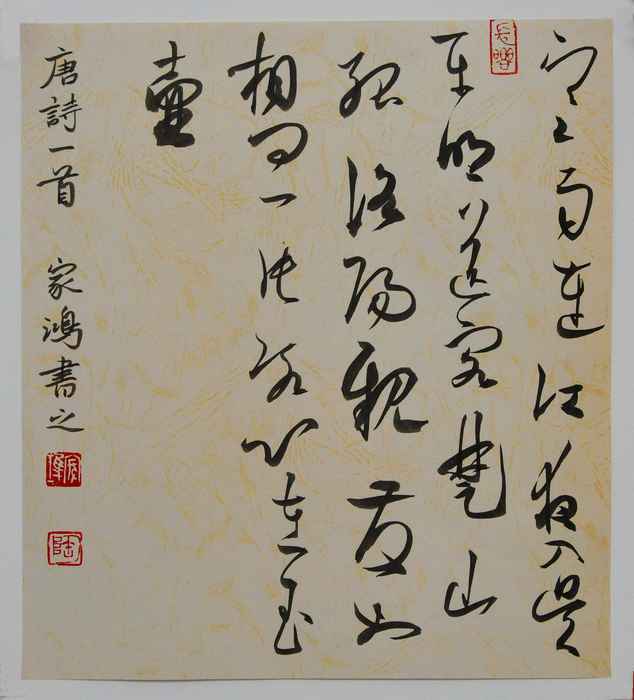 寒雨連江夜入吳
平明送客楚山
孤洛陽親友如
相問一片冰心在玉
壺
唐詩一首 家鴻書之
陶